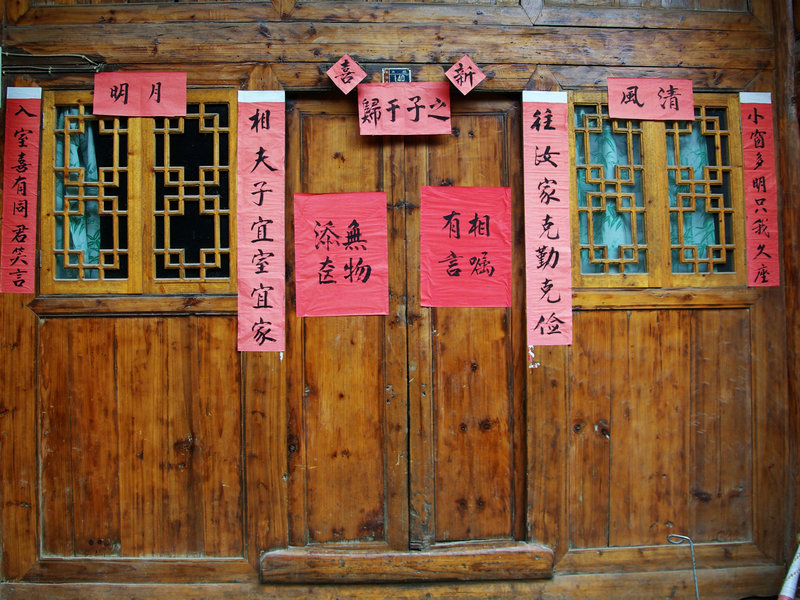 新喜
之子于歸
清風
月明
小窗多明只我久座
入室喜有同君笑言
往汝家克勤克俭
相夫子宜室宜家
相嘱
有言
無物
添
140